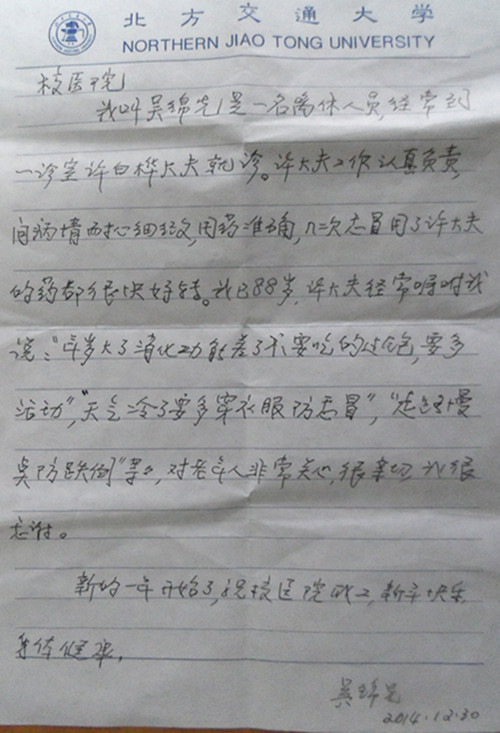 北方交通大学
NORTHERN JIAO TONG UNIVERSITY
校医院
我叫吴绵先是一名离休人员,经常到
一诊室许白桦大夫就诊。许大夫工作认真负责,
问病情西心细致,用药准确,几次感冒用了许大夫
的药都很快好转。我已88岁,许大夫经常嘱咐我
说:“年岁大了消化功能差了不要吃的过饱,要多
活动”,“天气冷了要多穿衣服防感冒”,“走路慢
点防跌倒”等。对老年人非常关心,很亲切我很
感谢。
新的一年开始了,祝校医院职工,新年快乐
身体健康。
2014.12.30